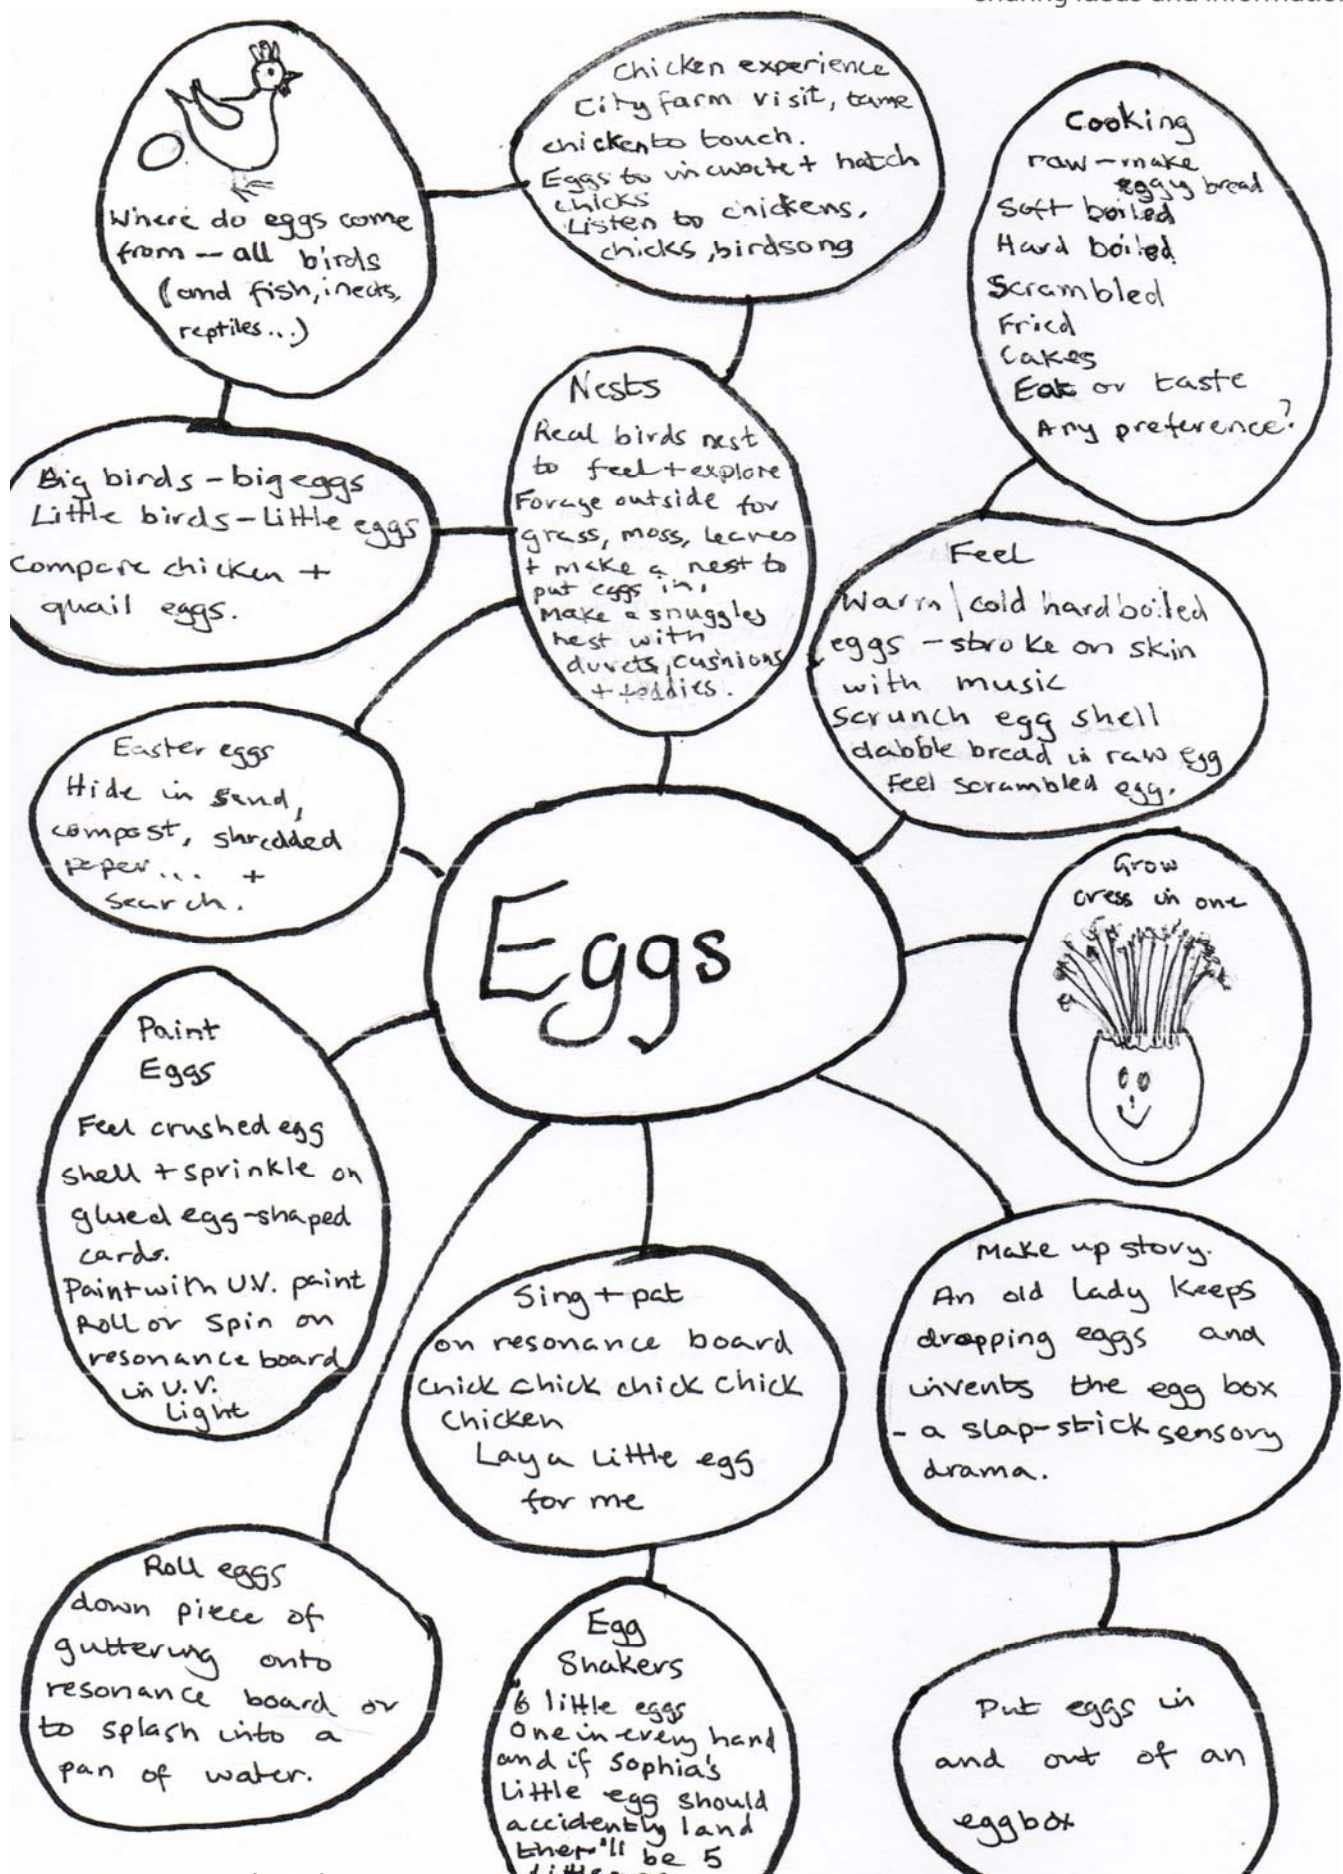 sharing ideas and information
Where do eggs come
from -- all birds
(and fish, inects,
reptiles...)
Chicken experience
City farm visit, tame
chicken to touch.
Eggs to incubate + hatch
chicks
Listen to chickens,
chicks, birdsong
Cooking
raw - make
eggy bread
Soft boiled
Hard boiled
Scrambled
Fried
Cakes
Eat or taste
Any preference?
Big birds - big eggs
Little birds - Little eggs
Compare chicken +
quail eggs.
Nests
Real birds nest
to feel + explore
Forage outside for
grass, moss, leaves
+ make a nest to
put eggs in.
Make a snuggles
nest with
duvets, cushions
+ teddies.
Feel
Warm / cold hard boiled
eggs - stroke on skin
with music
Scrunch egg shell
dabble bread in raw egg
Feel scrambled egg.
Easter eggs
Hide in sand,
compost, shredded
paper... +
search.
Eggs
Grow
cress in one
Paint
Eggs
Feel crushed egg
shell + sprinkle on
glued egg-shaped
cards.
Paint with U.V. paint
Roll or spin on
resonance board
in U.V.
Light
Sing + pat
on resonance board
chick chick chick chick
chicken
Lay a little egg
for me
Make up story.
An old lady keeps
dropping eggs and
invents the egg box
- a slap-stick sensory
drama.
Roll eggs
down piece of
guttering onto
resonance board or
to splash into a
pan of water.
Egg
Shakers
"6 little eggs
One in every hand
and if Sophia's
little egg should
accidently land
ther'll be 5
Put eggs in
and out of an
eggbox